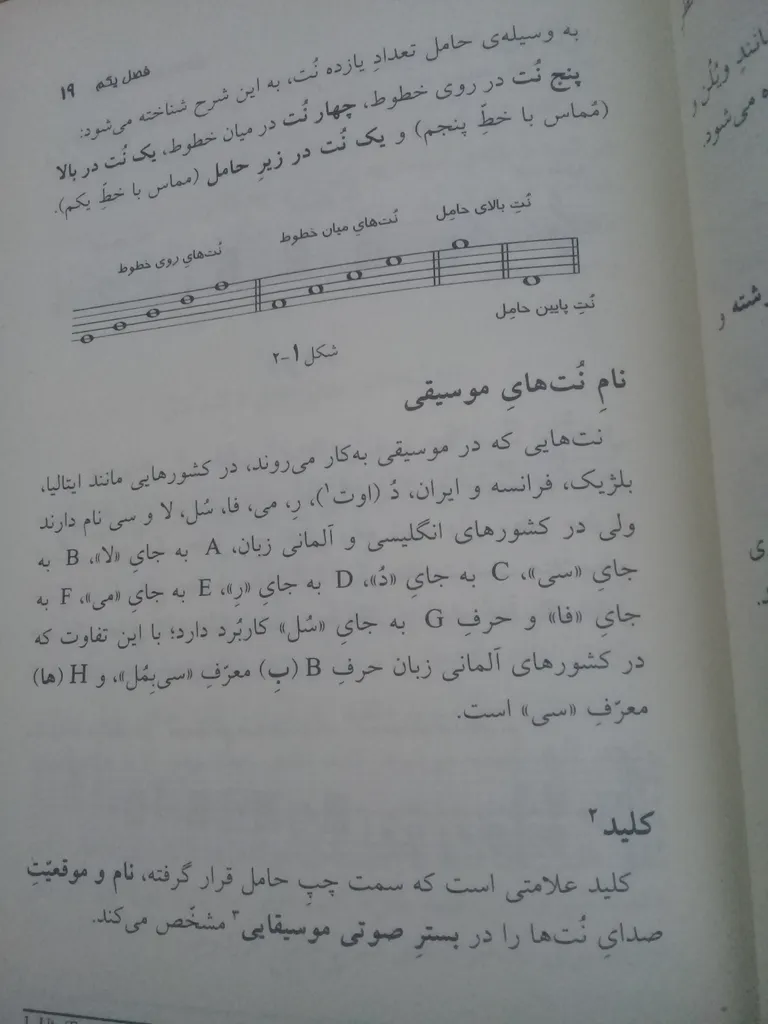 فصل یکم ۱۹
به وسیله‌ی حامل تعدادِ یازده نُت، به این شرح شناخته می‌شود:
پنج نُت در روی خطوط، چهار نُت در میان خطوط، یک نُت در بالا
(مُماس با خطِّ پنجم) و یک نُت در زیرِ حامل (مماس با خطِّ یکم).
نُتِ بالای حامِل
نُت‌هایِ میان خطوط
نُت‌هایِ روی خطوط
نُتِ پایین حامِل
شکل ۱-۲
نامِ نُت‌هایِ موسیقی
نت‌هایی که در موسیقی به‌کار می‌روند، در کشورهایی مانند ایتالیا،
بلژیک، فرانسه و ایران، دُ (اوت۱)، رِ، می، فا، سُل، لا و سی نام دارند
ولی در کشورهای انگلیسی و آلمانی زبان، A به جایِ «لا»، B به
جایِ «سی»، C به جایِ «دُ»، D به جایِ «رِ»، E به جایِ «می»، F به
جایِ «فا» و حرفِ G به جایِ «سُل» کاربُرد دارد؛ با این تفاوت که
در کشورهای آلمانی زبان حرفِ B (بِ) معرّفِ «سی‌بِمُل»، و H (ها)
معرّفِ «سی» است.
کلید۲
کلید علامتی است که سمت چپِ حامل قرار گرفته، نام و موقعیّتِ
صدایِ نُت‌ها را در بسترِ صوتی موسیقایی۳ مشخّص می‌کند.
مانندِ ویُلُن و
ه می‌شود.
رشته و